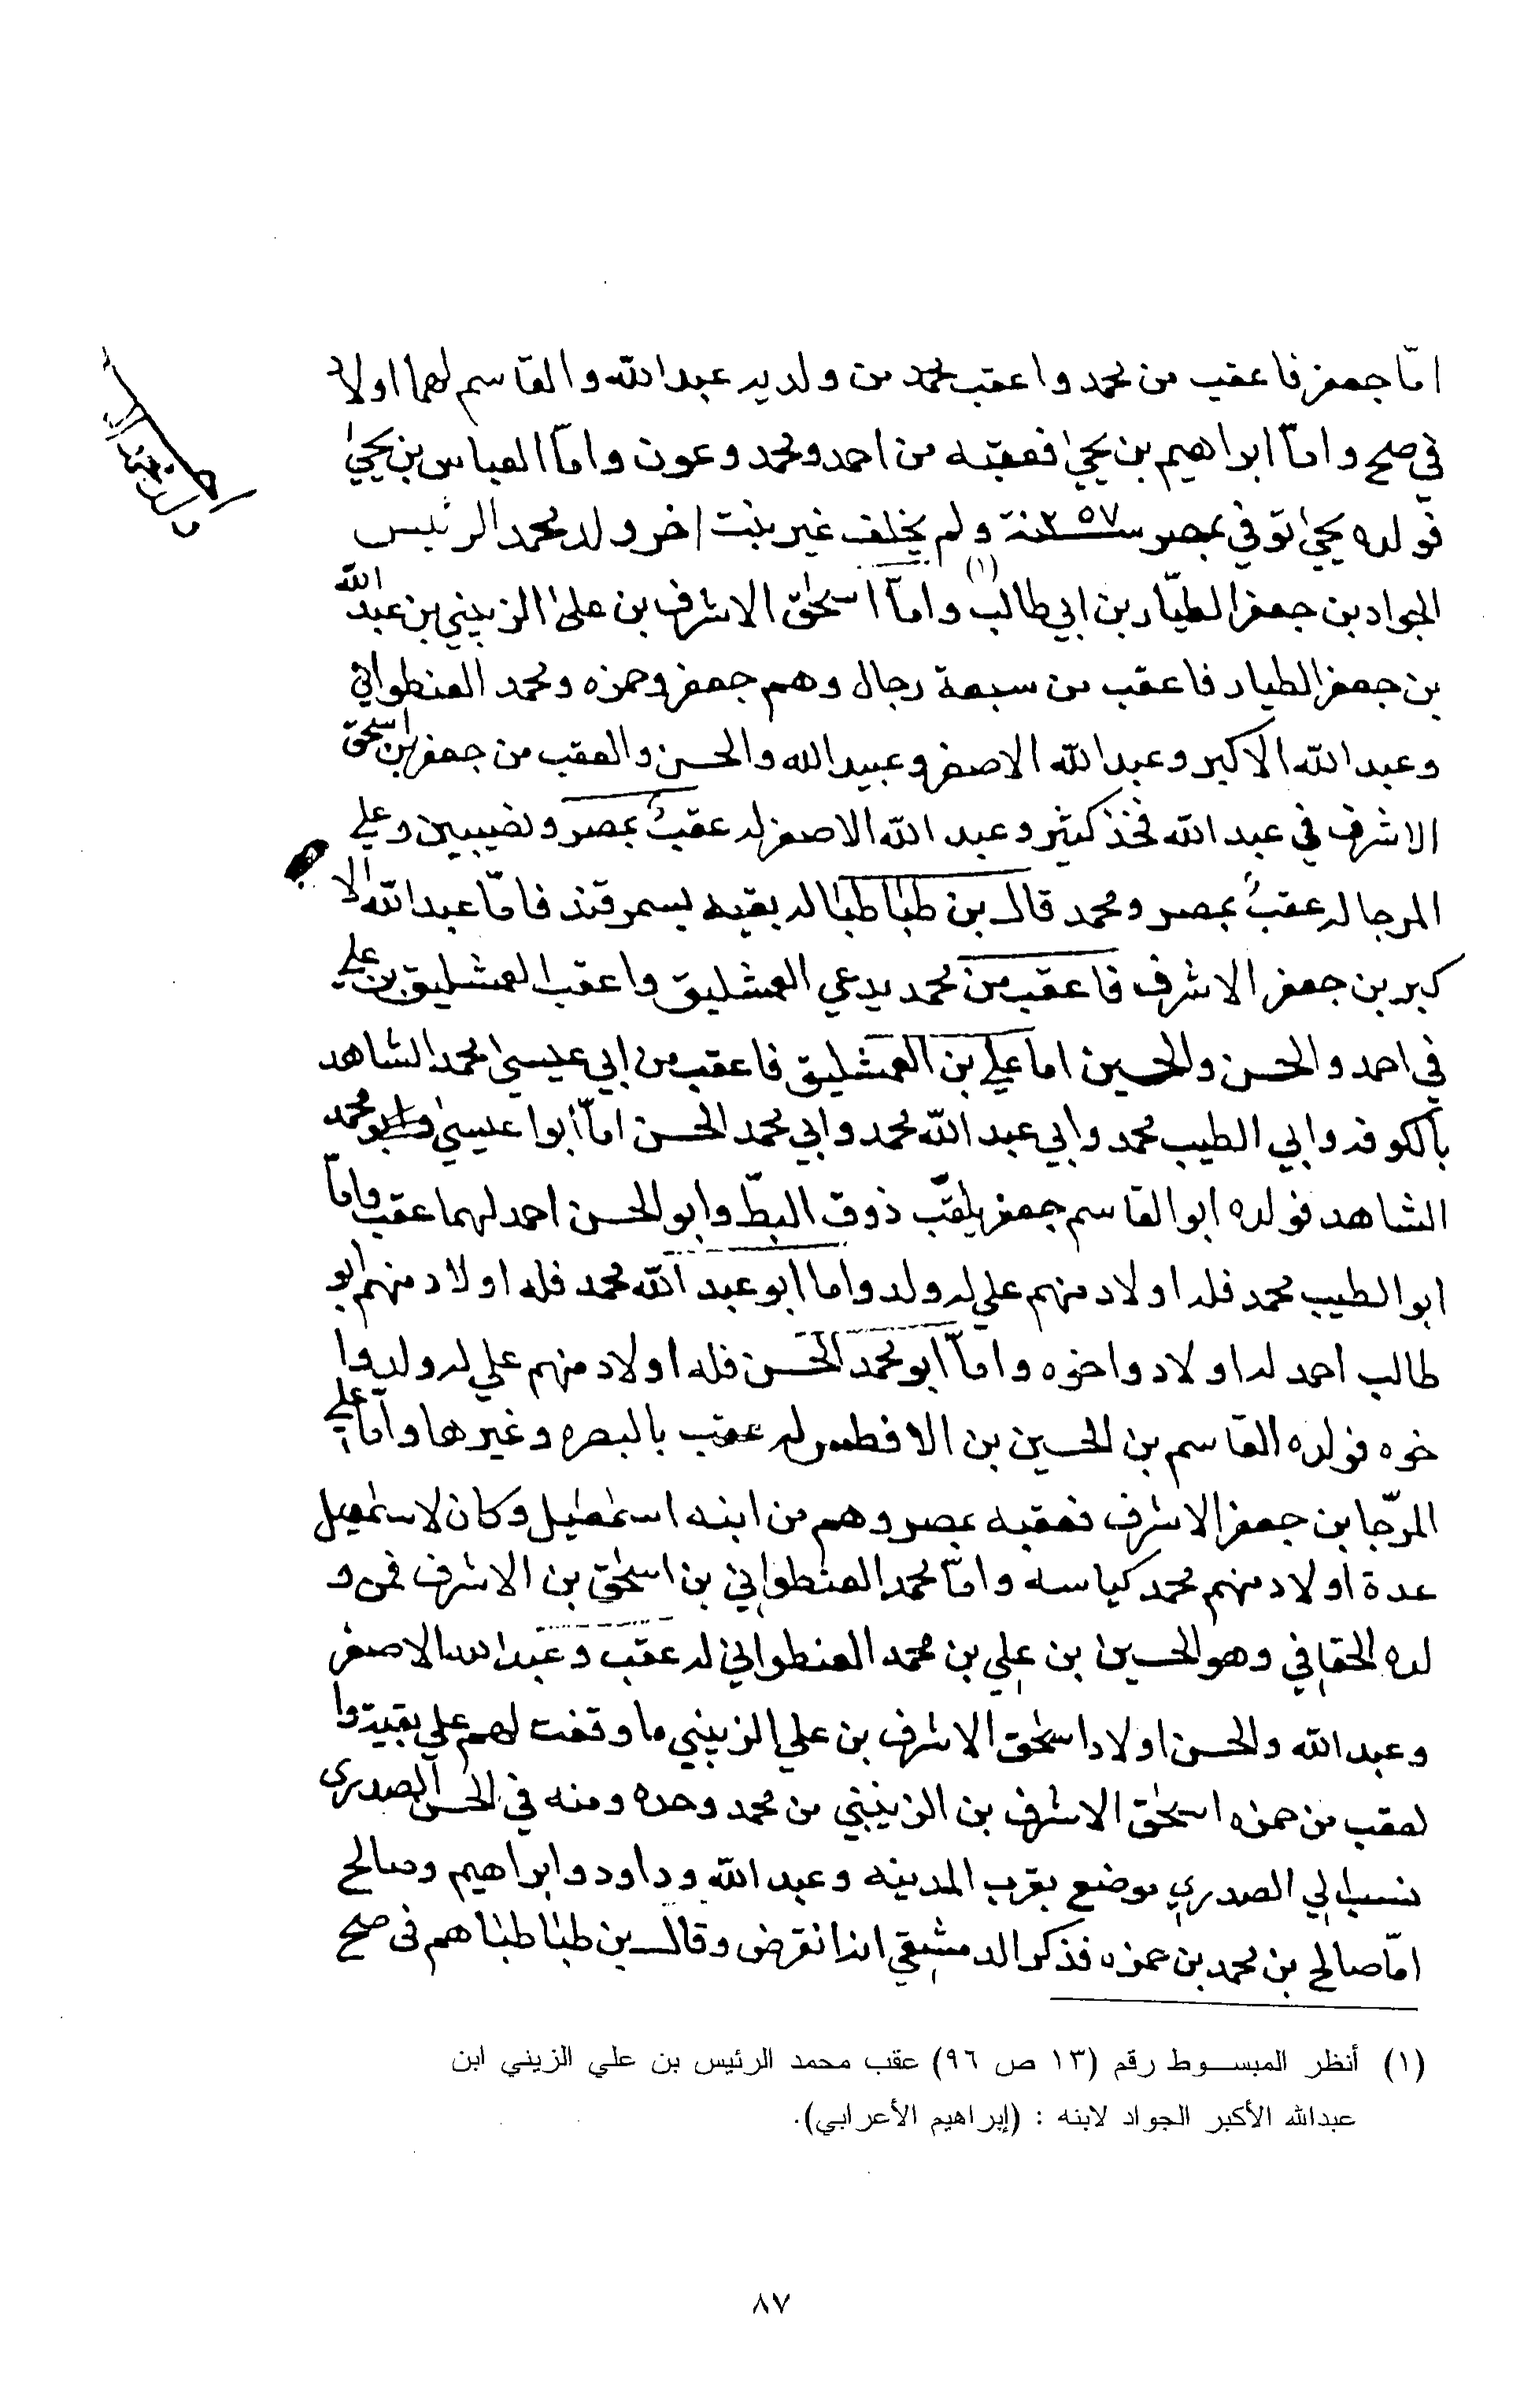 امّا جعفر فاعقب من محمد واعقب محمد من ولديه عبدالله والقاسم لهما اولاد
في صح وامّا ابراهيم بن يحيىٰ فعقبه من احمد ومحمد وعون وامّا العباس بن يحيىٰ
فولده يحيىٰ توفي بمصر سنة ٢٥٧ ولم يخلف غير بنت اخر ولد محمد الرئيس
الجواد بن جعفر الطيّار بن ابي طالب (١) وامّا اسحٰق الاشرف بن علىٰ الزينبي بن عبدالله
بن جعفر الطيار فاعقب من سبعة رجال وهم جعفر وحمزه ومحمد العنطواني
وعبدالله الاكبر وعبدالله الاصغر وعبيدالله والحسن والعقب من جعفر بن اسحٰق
الاشرف في عبدالله فخذ كثير وعبد الله الاصغر له عقبٌ بمصر ونصيبين وعلي
المرجا له عقبٌ بمصر ومحمد قال بن طباطبا له بقيه بسمرقند فامّا عبدالله الا
كبر بن جعفر الاشرف فاعقب من محمد يدعي العمشليق واعقب العمشليق بن علي
في احمد والحسن والحسين اما علي بن العمشليق فاعقب من ابي عيسىٰ محمد الشاهد
بالكوفه وابي الطيب محمد وابي عبدالله محمد وابي محمد الحسن امّا ابوا عيسىٰ محمد
الشاهد فولده ابوالقاسم جعفر يلقّب ذوق البطّ وابوالحسن احمد لهما عقب وامّا
ابوالطيب محمد فله اولاد منهم علي له ولد واما ابوعبد الله محمد فله اولاد منهم ابو
طالب احمد له اولاد واخوه وامّا ابومحمد الحسن فله اولاد منهم علي له ولد وا
خوه فولده القاسم بن الحسين بن الافطس له عقب بالبصره وغيرها وامّا علي
المرجّا بن جعفر الاشرف فعقبه بمصر وهم من ابنه اسمٰعيل وكان لاسمٰعيل
عدة اولاد منهم محمد كياسه وامّا محمد العنطواني بن اسحٰق بن الاشرف فمن و
لده الحقافي وهو الحسين بن علي بن محمد العنطواني له عقب وعبدالله الاصغر
وعبدالله والحسن اولاد اسحٰق الاشرف بن علي الزينبي ما وقفت لهم علي بقية وا
لعقب من حمزه اسحٰق الاشرف بن الزينبي من محمد وحده ومنه في الحسن الصدرى
نسب الي الصدري موضع بقرب المدينه وعبدالله وداود وابراهيم وصالح
امّا صالح بن محمد بن حمزه فذكر الدمشقي انه انقرض وقال بن طباطبا هم فى صح
(١) أنظر المبسوط رقم (١٣ ص ٩٦) عقب محمد الرئيس بن علي الزيني ابن
عبدالله الأكبر الجواد لابنه : (إبراهيم الأعرابي).
٨٧